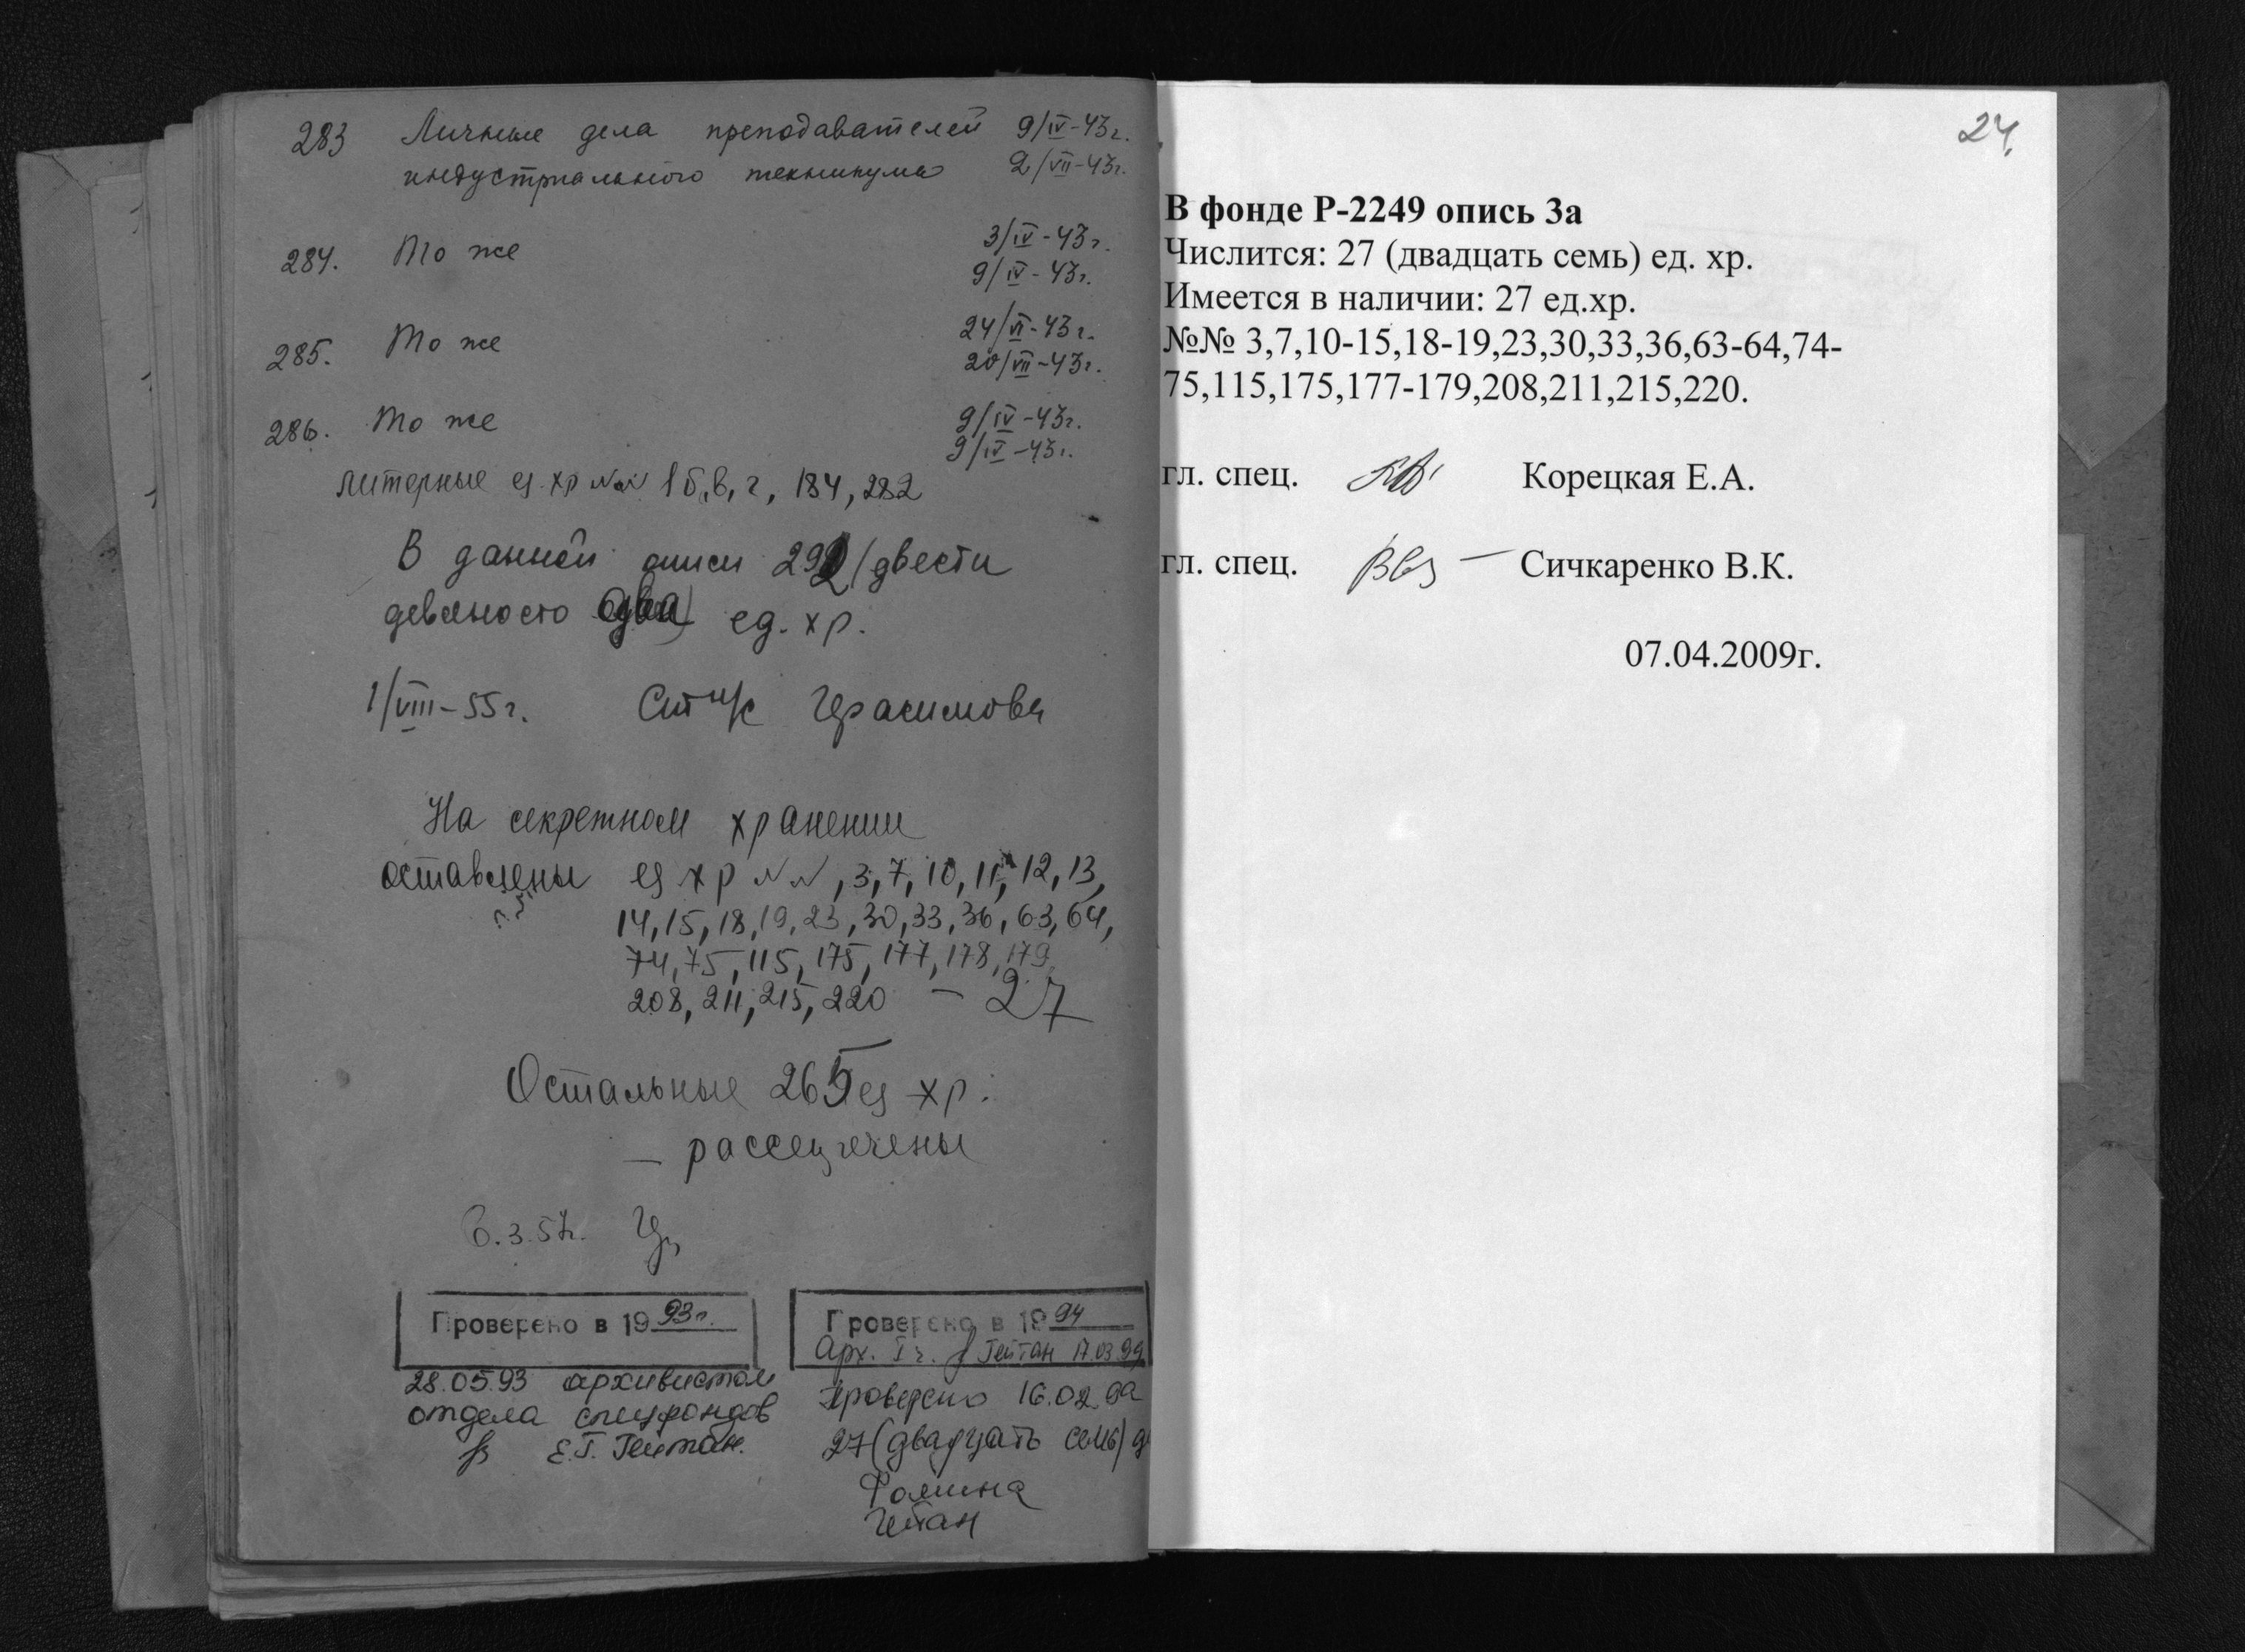 283 Личные дела преподавателей 9/IV-43г.
индустриального техникума 2/VII-43г.
284. То же 3/IV-43г.
9/IV-43г.
285. То же 24/VI-43г.
20/VII-43г.
286. То же 9/IV-43г.
9/IV-43г.
литерные ед. хр №№ 1б,в,г, 184, 282
В данной описи 292 /двести
девяносто два) ед. хр.
1/VIII-55г. Ст н/с Герасимова
На секретном хранении
оставлены ед хр №№, 3, 7, 10, 11, 12, 13,
14, 15, 18, 19, 23, 30, 33, 36, 63, 64,
74, 75, 115, 175, 177, 178, 179
208, 211, 215, 220 – 27
Остальные 265 ед хр.
– рассекречены
6.3.57г.
Проверено в 1993г.
28.05.93 архивистом
отдела спецфондов
Е.Г. Гейтан.
Проверено в 1994
Арх. I к. Гейтан 17.03.94
Проверено 16.02.
27 (двадцать семь) д
Фомина
Гейтан
24.
В фонде Р-2249 опись 3а
Числится: 27 (двадцать семь) ед. хр.
Имеется в наличии: 27 ед.хр.
№№ 3,7,10-15,18-19,23,30,33,36,63-64,74-
75,115,175,177-179,208,211,215,220.
гл. спец. Корецкая Е.А.
гл. спец. Сичкаренко В.К.
07.04.2009г.